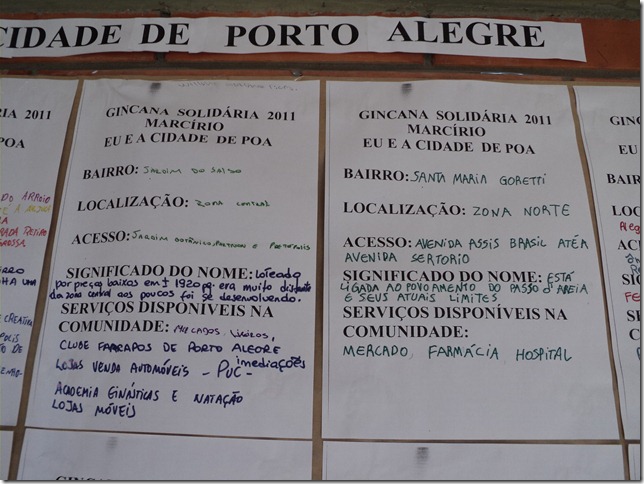 CIDADE DE PORTO ALEGRE
GINCANA SOLIDÁRIA 2011
MARCÍRIO
EU E A CIDADE DE POA
BAIRRO: JARDIM DO SALSO
LOCALIZAÇÃO: ZONA CENTRAL
ACESSO: JARDIM BOTÂNICO,
SIGNIFICADO DO NOME: LOTEADO
por preços baixos em ± 1920 pq. era muito distante
da zona central aos poucos foi se desenvolvendo.
SERVIÇOS DISPONÍVEIS NA
COMUNIDADE: MERCADOS,
CLUBE FARRAPOS DE PORTO ALEGRE
LOJAS VENDA AUTOMÓVEIS - PUC - imediações
ACADEMIA GINÁSTICAS E NATAÇÃO
LOJAS MÓVEIS
GINCANA SOLIDÁRIA 2011
MARCÍRIO
EU E A CIDADE DE POA
BAIRRO: SANTA MARIA GORETTI
LOCALIZAÇÃO: ZONA NORTE
ACESSO: AVENIDA ASSIS BRASIL ATÉ A
AVENIDA SERTORIO
SIGNIFICADO DO NOME: ESTÁ
LIGADA AO POVOAMENTO DO PASSO D'AREIA
E SEUS ATUAIS LIMITES.
SERVIÇOS DISPONÍVEIS NA
COMUNIDADE:
MERCADO, FARMÁCIA HOSPITAL